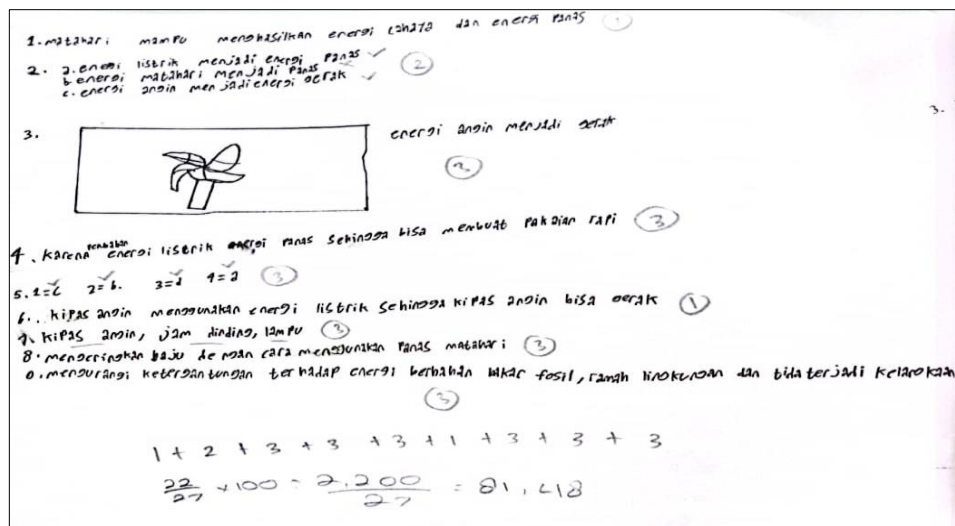 1. matahari mampu menghasilkan energi cahaya dan energi panas 1
2. a. energi listrik menjadi energi panas ✓ 2
b energi matahari menjadi panas ✓
c. energi angin menjadi energi gerak ✓
3. energi angin menjadi gerak 3
3.
4. karena perubahan energi listrik energi panas sehingga bisa membuat pakaian rapi 3
5. 1=c 2=b. 3=d 4=a 3
6.. kipas angin menggunakan energi listrik sehingga kipas angin bisa gerak 1
7. kipas angin, jam dinding, lampu 3
8. mengeringkan baju dengan cara menggunakan panas matahari 3
9. mengurangi ketergantungan terhadap energi berbahan bakar fosil, ramah lingkungan dan tida terjadi kelangkaan
3
1 + 2 + 3 + 3 + 3 + 1 + 3 + 3 + 3
22/27 × 100 = 2.200/27 = 81,48